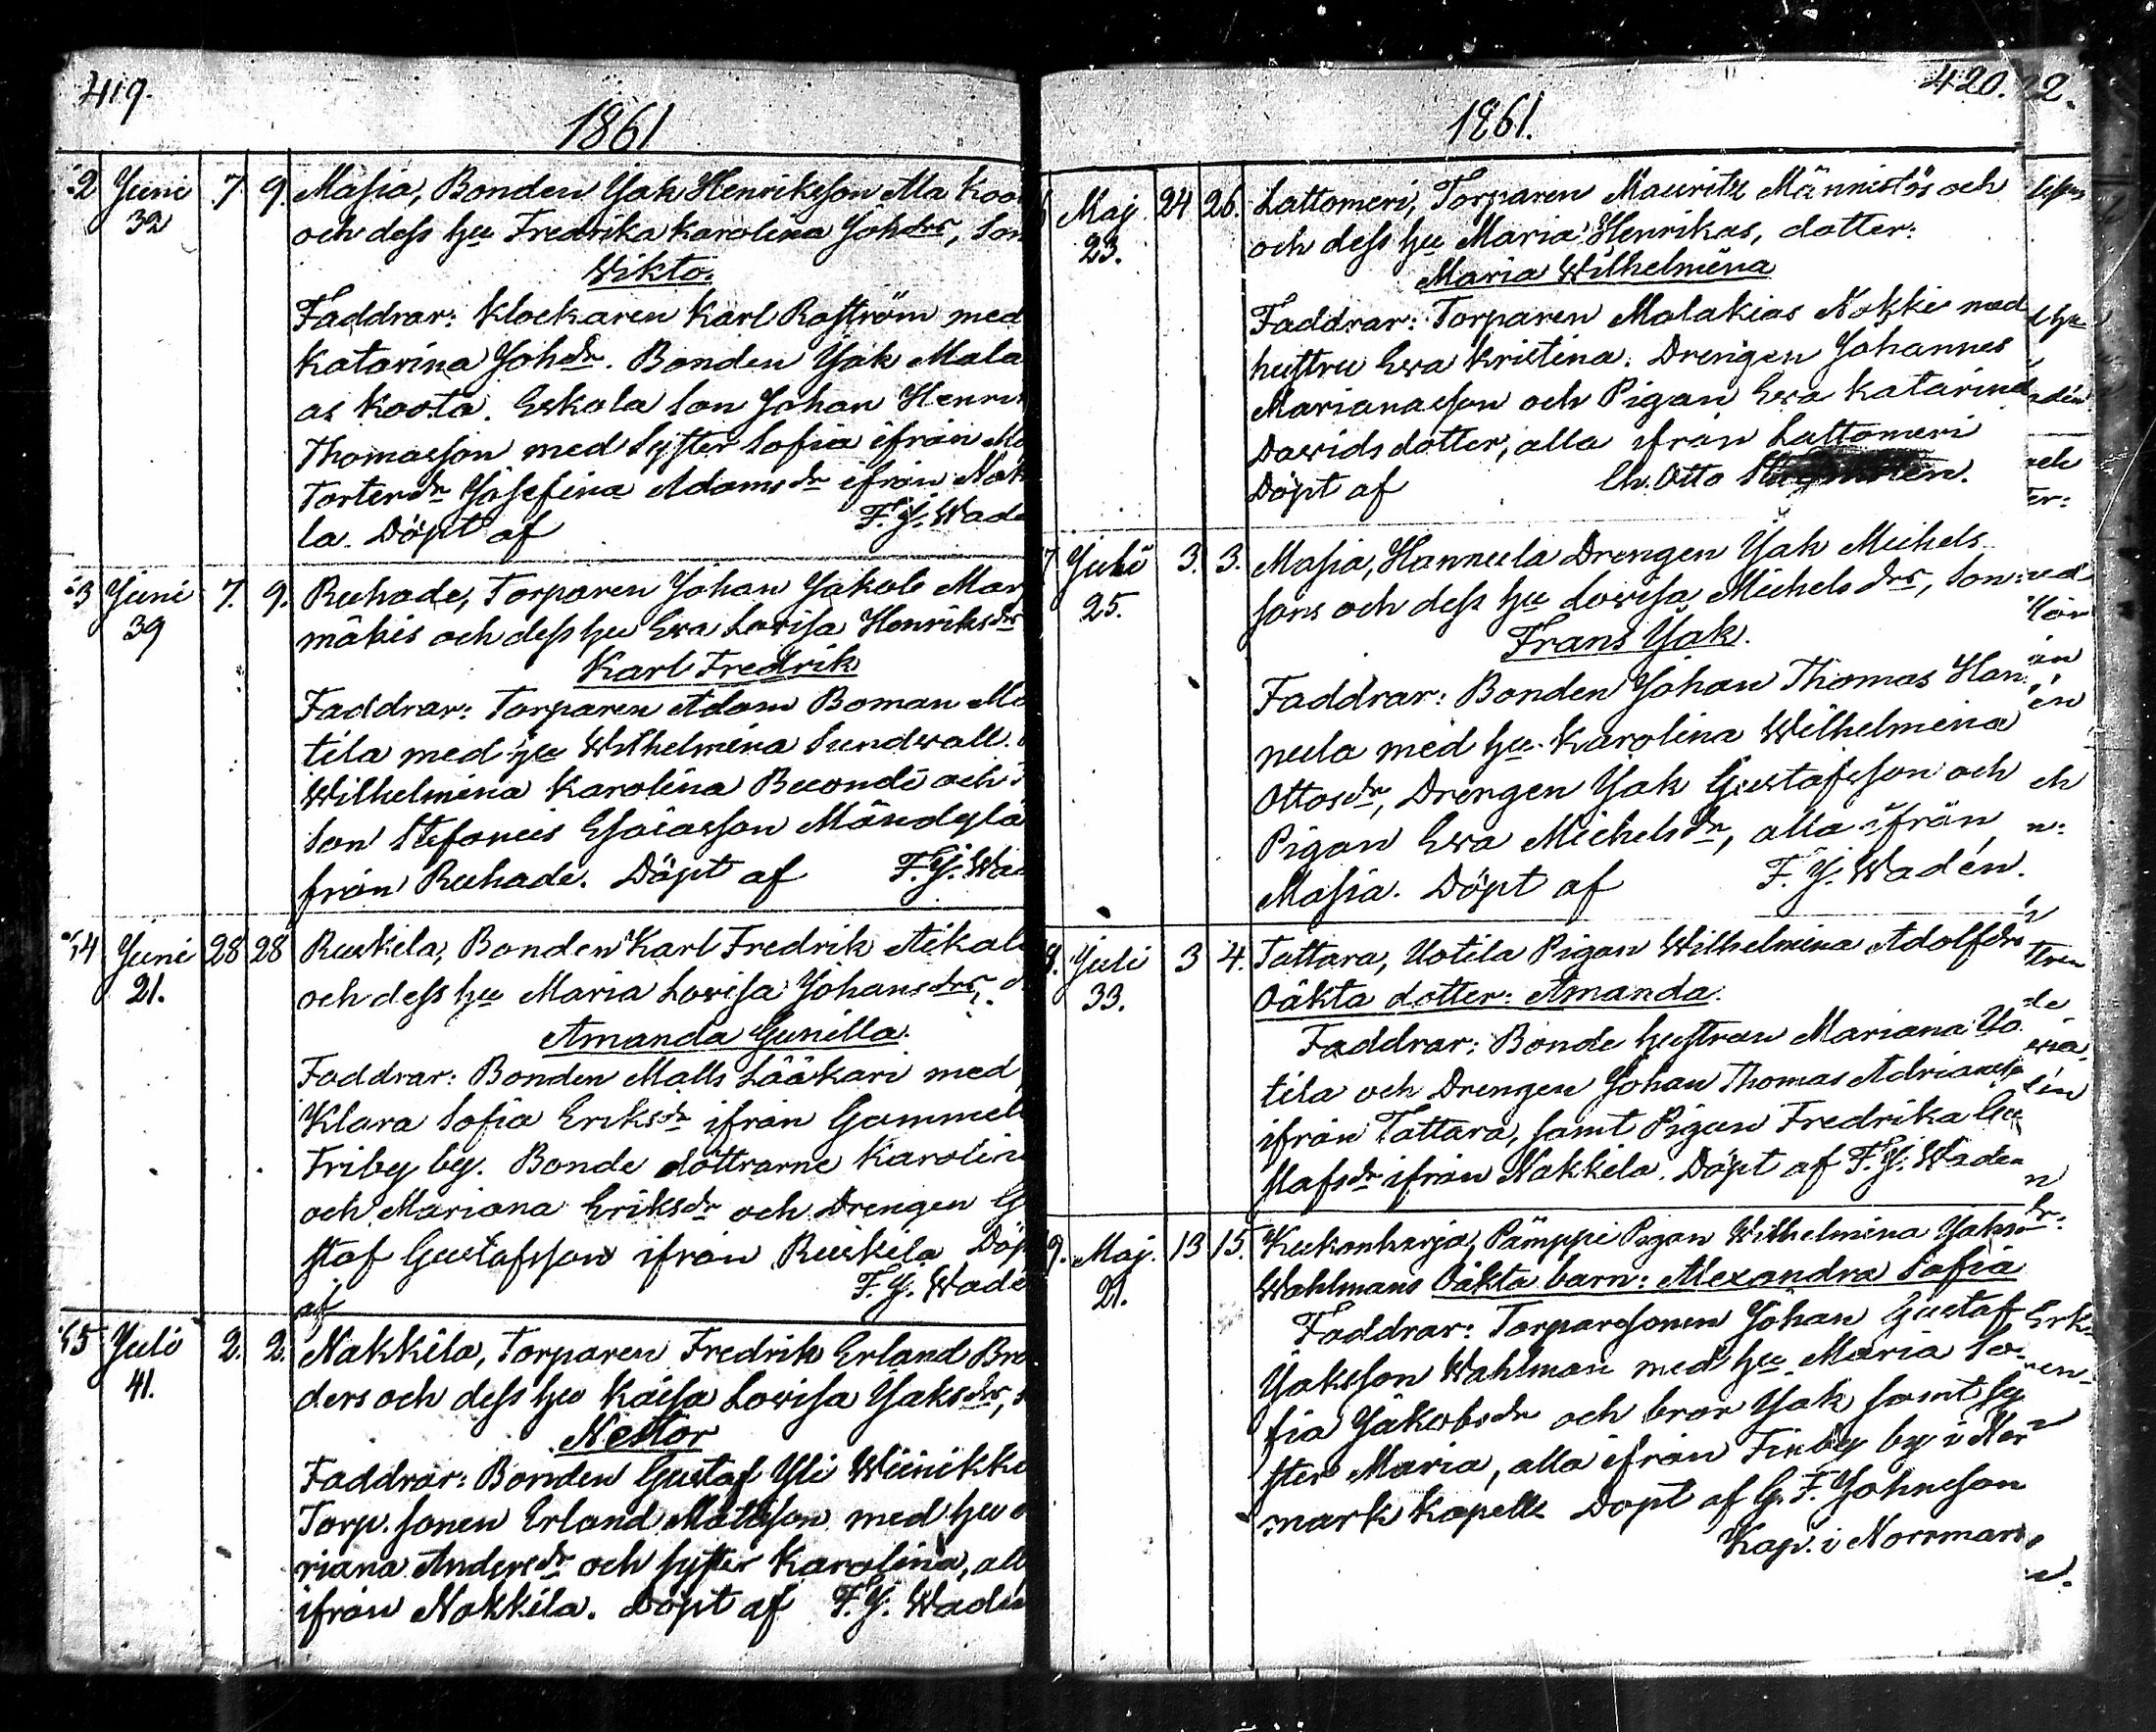 419.
1861
2 Juni 7. 9. Masia, Bonden Jak Henriksson Ala Koo
32 och dess hu Fredrika Karolina Johdrs, Son
Wikto.
Faddrar: Klockaren Karl Roström med
Katarina Johdr. Bonden Jak Mala
as Koota. Eskola Son Johan Henrik
Thomasson med Syster Sofia ifrån
Torterdr Josefina Adamsdr ifrån Nak
la. Döpt af F. J. Wade
3 Juni 7. 9. Ruhade, Torparen Johan Jakob Mar
39 mäkis och dess hu Ewa Lovisa Henriksdrs
Karl Fredrik
Faddrar: Torparen Adam Boman
tila med hu Wilhelmina Sundwall.
Wilhelmina Karolina Buconde och
Son Stefanus Esaiasson Mändylä
från Ruhade. Döpt af F. J. Wad
54 Juni 28 28 Ruskila, Bonden Karl Fredrik Aikal
21. och dess hu Maria Lovisa Johansdrs,
Amanda Gunilla.
Faddrar: Bonden Matts Lääkari med
Klara Sofia Eriksdr ifrån Gammel
Friby by. Bonde döttrarne Karolin
och Mariana Eriksdr och Drengen G
staf Gustafsson ifrån Ruskila Döp
af F. J. Wadé
55 Juli 2. 2. Nakkila, Torparen Fredrik Erland Bro
41. ders och dess hu Kaisa Lovisa Jaksdrs, s
Nestor
Faddrar: Bonden Gustaf Yli Wiinikka
Torp. sonen Erland Mattsson med hu
riana Andersdr och syster Karolina, all
ifrån Nakkila. Döpt af F. J. Wadén
420.
2.
1861.
6 Maj 24 26. Lattomeri, Torparen Mauritz Männistös och
23. och dess hu Maria Henrikas, dotter:
Maria Wilhelmina
Faddrar: Torparen Malakias Nokki med
hustru Ewa Kristina. Drengen Johannes
Marianasson och Pigan Ewa Katarina
Davidsdotter, alla ifrån Lattomeri
Döpt af Ch. Otto
7 Juli 3. 3. Masia, Hannula Drengen Jak Michels
25. sons och dess hu Lovisa Michelsdrs, Son:
Frans Jak.
Faddrar: Bonden Johan Thomas Han
nula med hu Karolina Wilhelmina
Ottosdr, Drengen Jak Gustafsson och
Pigan Ewa Michelsdr, alla ifrån
Masia. Döpt af F. J. Wadén.
8. Juli 3 4. Tattara, Uotila Pigan Wilhelmina Adolfdrs
33. Oäkta dotter: Amanda.
Faddrar: Bonde hustrun Mariana Uo
tila och Drengen Johan Thomas Adrianess
ifrån Tattara, samt Pigan Fredrika Gu
stafsdr ifrån Nakkila. Döpt af F. J. Waden
9. Maj. 13 15. Kukonharja, Pämppi Pigan Wilhelmina Jaks
21. Wahlmans Oäkta barn: Alexandra Sofia
Faddrar: Torparesonen Johan Gustaf
Jaksson Wahlman med hu Maria So
fia Jakobsdr och bror Jak samt sy
ster Maria, alla ifrån Finby by i Nor
mark Kapell. Döpt af G. F. Johnsson
Kap. i Norrmark